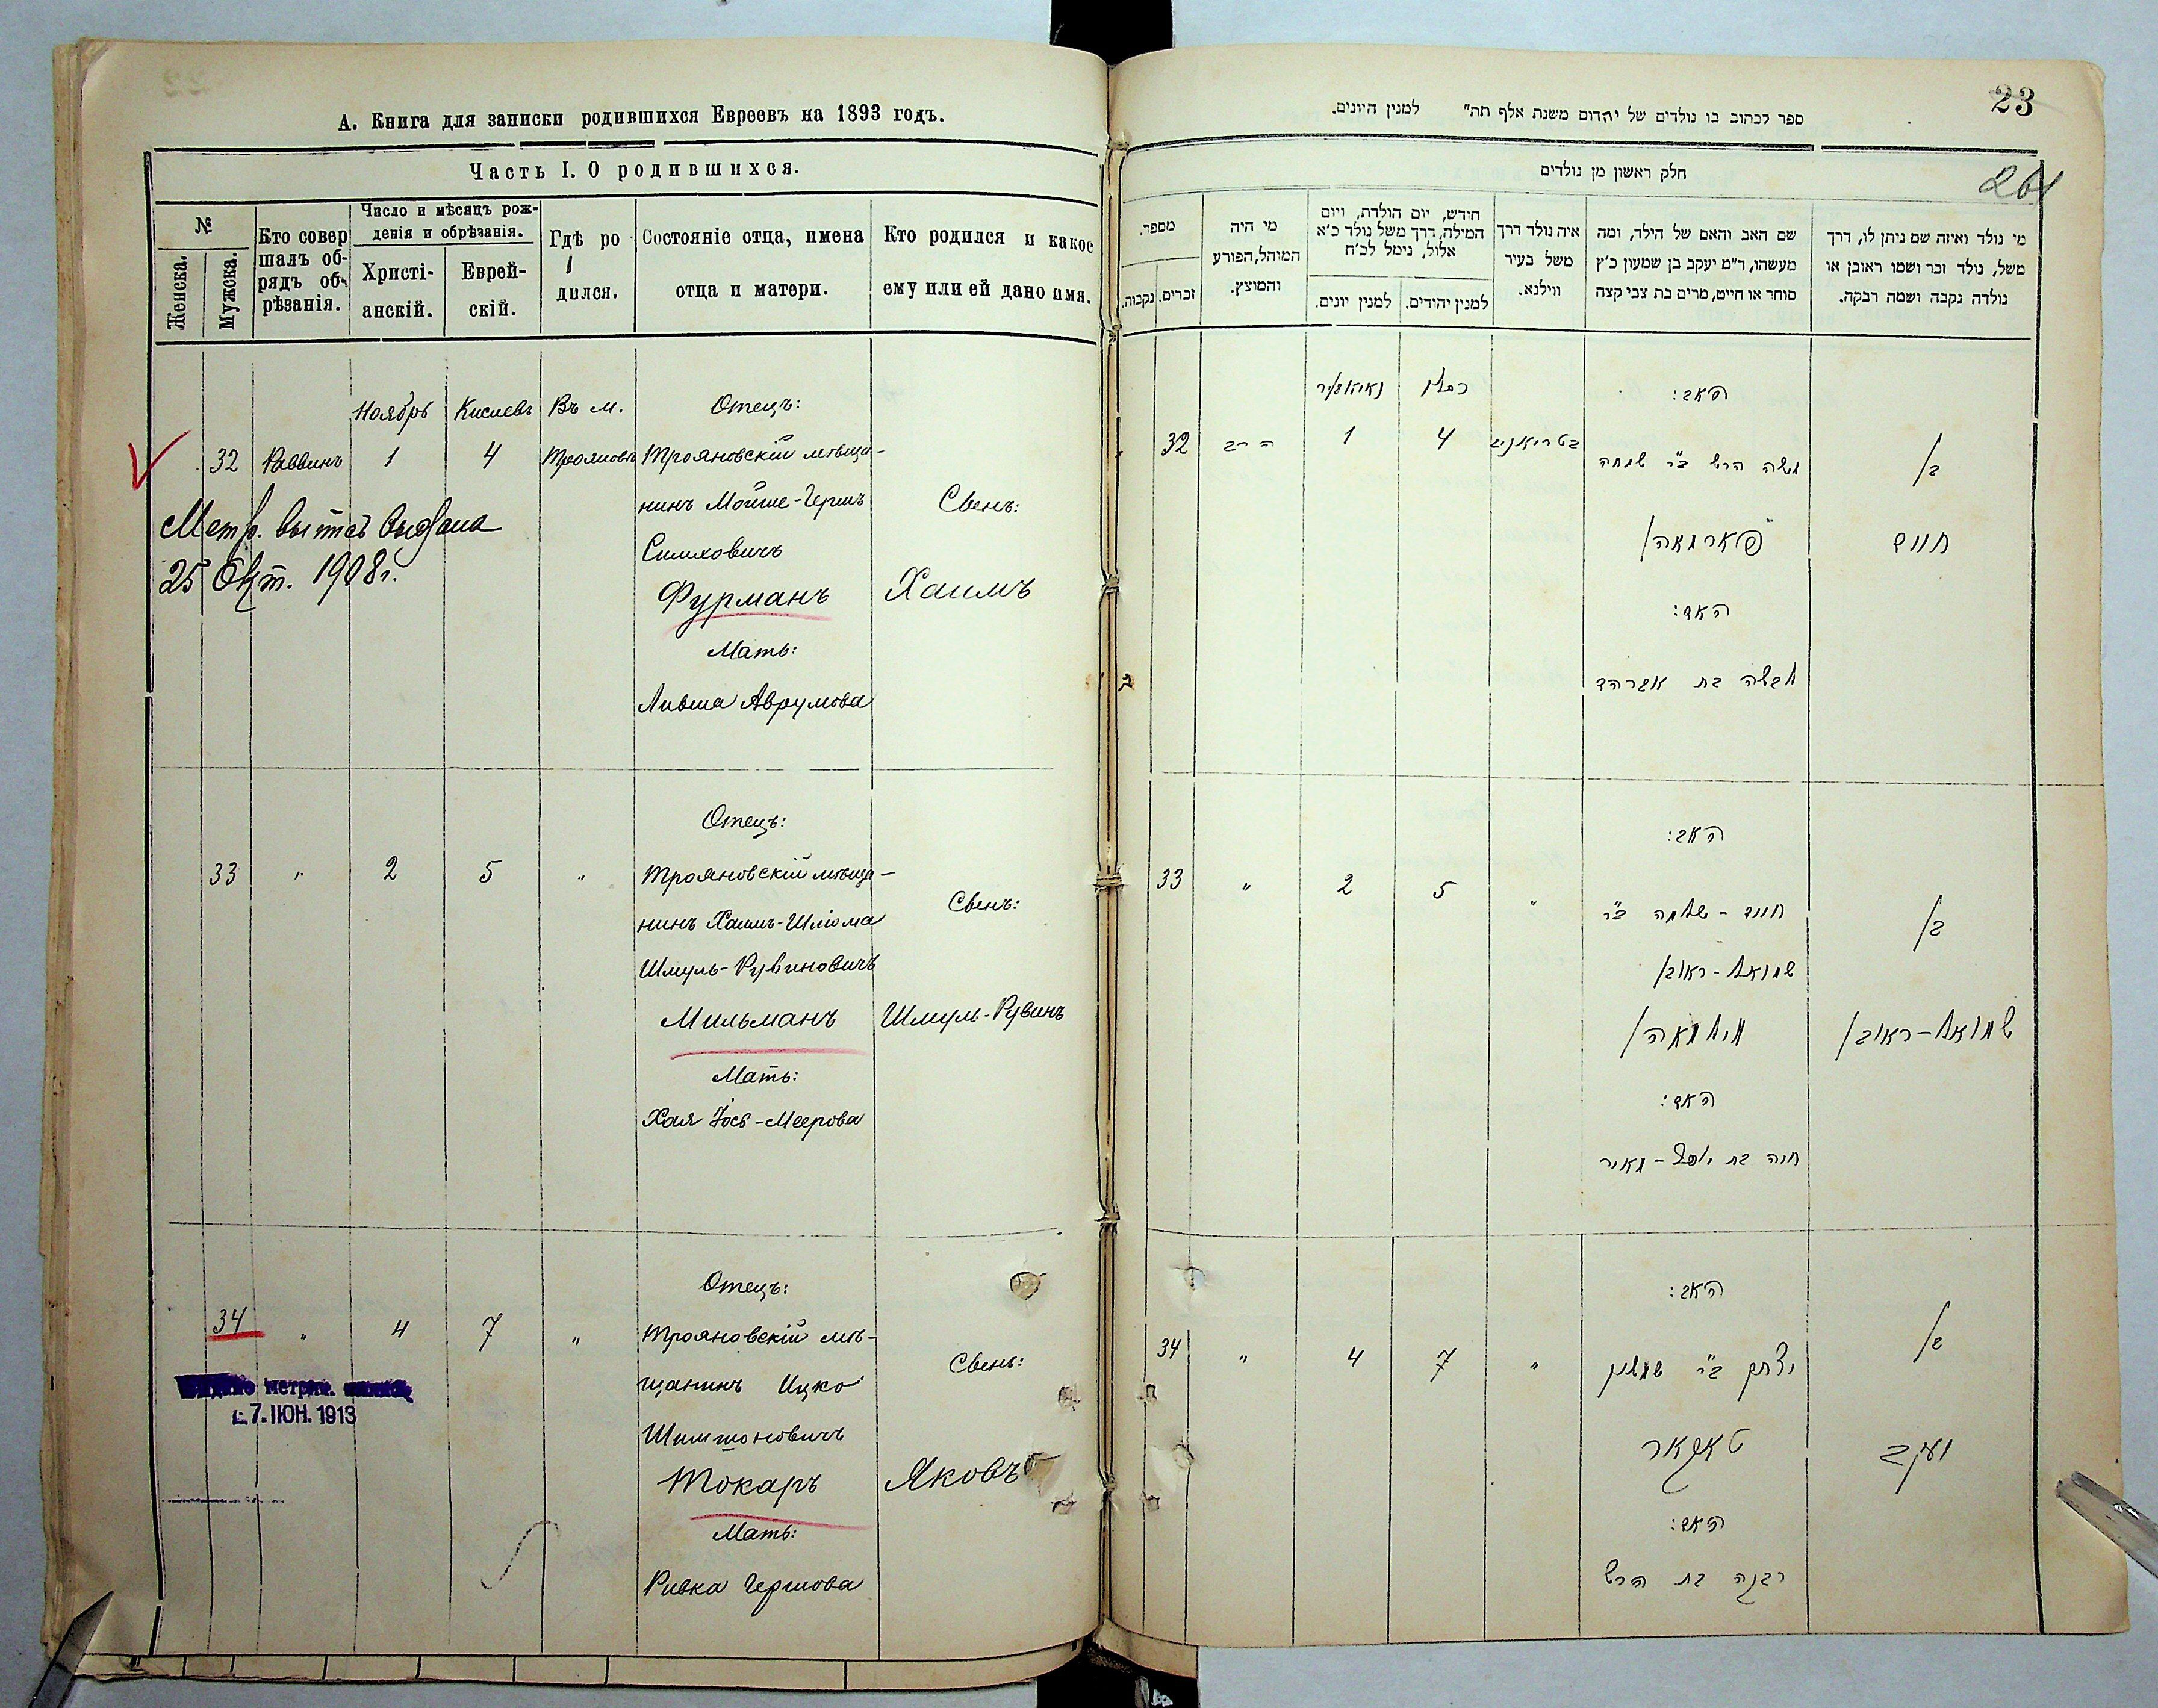 А. Книга для записки родившихся Евреевъ на 1893 годъ.
Часть I. О родившихся.
№
Женска.
Мужска.
Кто совер
шалъ об-
рядъ об-
рѣзанія.
Число и мѣсяцъ рож-
денія и обрѣзанія.
Христі-
анскій.
Еврей-
скій.
Гдѣ ро
дился.
Состояніе отца, имена
отца и матери.
Кто родился и какое
ему или ей дано имя.
Ноябрь Кислевъ Въ м. Отецъ:
32 Раввинъ 1 4 Трояновъ Трояновскій мѣща-
нинъ Мойше-Гершъ
Симховичъ
Фурманъ
Мать:
Ливша Аврумова
Свенъ:
Хаимъ
Метр. выпись выдана
25 Окт. 1908г.
Отецъ:
33 " 2 5 " Трояновскій мѣща-
нинъ Хаимъ-Шлiома
Шмуль-Рувиновичъ
Мильманъ
Мать:
Хая Іосъ-Меерова
Свенъ:
Шмуль-Рувинъ
Отецъ:
34 " 4 7 " Трояновскій мѣ-
щанинъ Ицко
Шимшоновичъ
Токаръ
Мать:
Ривка Гершова
Свенъ:
Яковъ
метрич.
7. ІЮН. 1913
23
ספר לכתוב בו נולדים של יהדום משנת אלף תת" למנין היונים.
חלק ראשון מן נולדים
מספר.
זכרים.
נקבות.
מי היה
המוהל, הפורע
והמוצץ.
חידש, יום הולדת, ויום
המילה, דרך משל נולד כ'א
אלול, נימל לכ'ח
למנין יונים.
למנין יהידים.
איה נולד דרך
משל בעיר
ווילנא.
שם האב והאם של הילד, ומה
מעשהו, ד"מ יעקב בן שמעון כ'ץ
סוחר או חייט, מרים בת צבי קצה
מי נולד ואיזה שם ניתן לו, דרך
משל, נולד זכר ושמו ראובן או
נולדה נקבה ושמה רבקה.
כסלו
האב:
32 הרב 1 4
משה הרש ב"ר שמחה
בן
פארמאן
חיים
האם:
בת אברהם
האב:
33 " 2 5 "
חיים - שלמה ב"ר
בן
שמואל - ראובן
מילמאן
שמואל - ראובן
האם:
חיה בת יוסף - מאיר
האב:
34 " 4 7 "
יצחק ב"ר שמשון
בן
טאקאר
יעקב
האם:
רבקה בת הרש